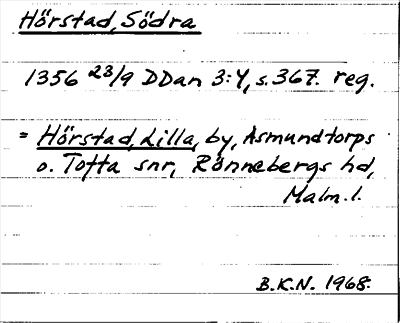 Hörstad, Södra
1356 23/9 DDan 3:4, s. 367. reg.
= Hörstad, Lilla, by, Asmundtorps
o. Tofta snr, Rönnebergs hd,
Malm. l.
B.K.N. 1968.